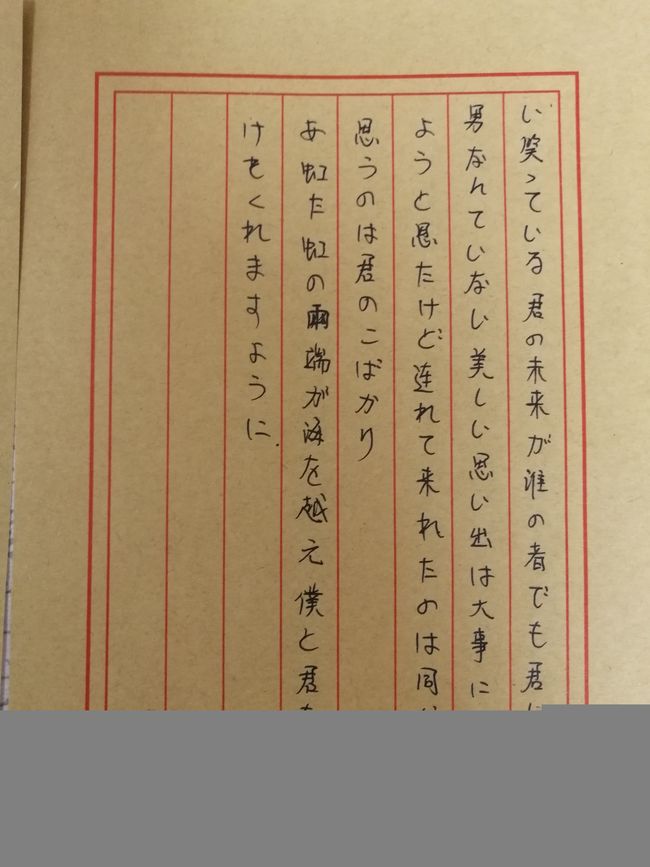 い笑っている君の未来が誰の者でも君に
男なんていない美しい思い出は大事に
ようと思たけど連れて来れたのは同じ
思うのは君のこばかり
あ虹た虹の両端が海を越え僕と君を
けをくれますように.